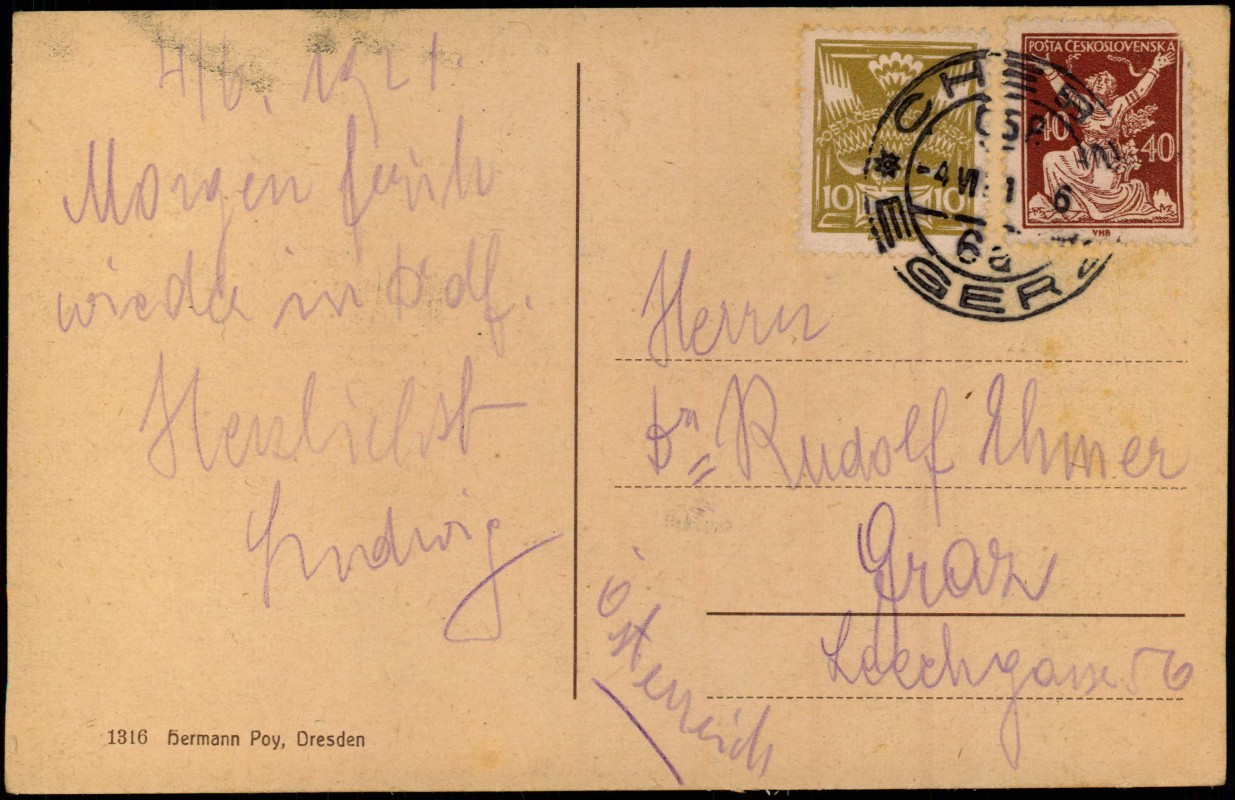 4/6. 1921.
Morgen früh
wieder in Ddf.
Herzlichst
Ludwig
1316 Hermann Poy, Dresden
POŠTA ČESKOSLOVENSKÁ
10 10
POŠTA ČESKOSLOVENSKÁ
40 40
VHB
CHEB
ČSR
-4 VI 1 6
6a
EGER
Herrn
Dr. Rudolf Ehmer
Graz
Leechgasse 56
Österreich